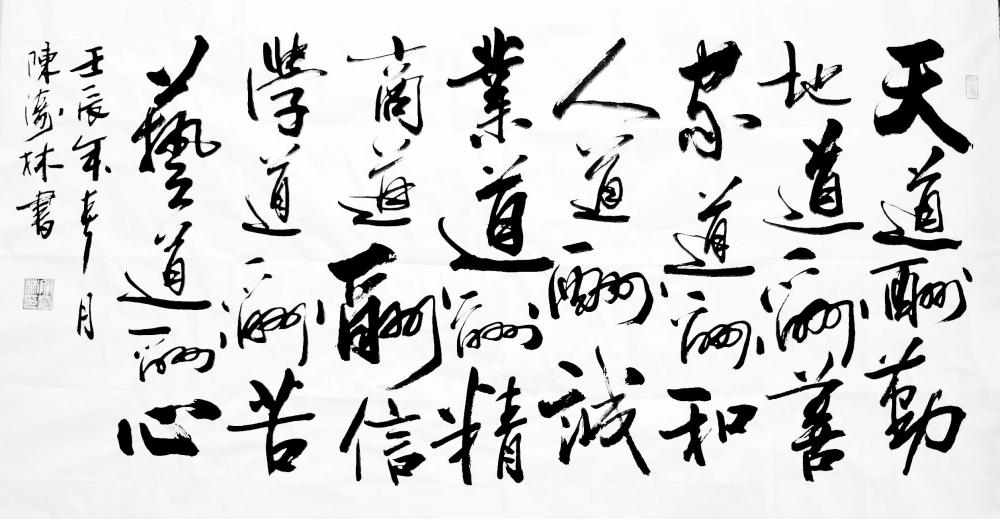 天道酬勤
地道酬善
家道酬和
人道酬誠
業道酬精
商道酬信
學道酬苦
藝道酬心
壬辰年春月
陳林書